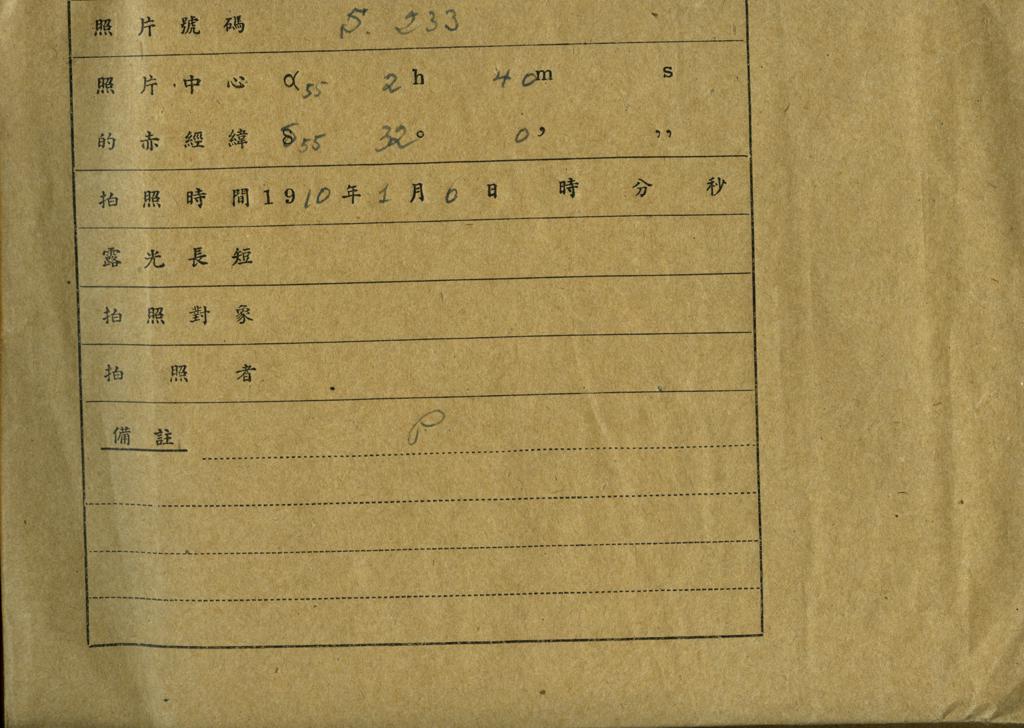 照片號碼 S. 233
照片中心 α55 2h 40m s
的赤經緯 δ55 32° 0’ ’’
拍照時間1910年1月0日 時 分 秒
露光長短
拍照對象
拍照者
備註 P